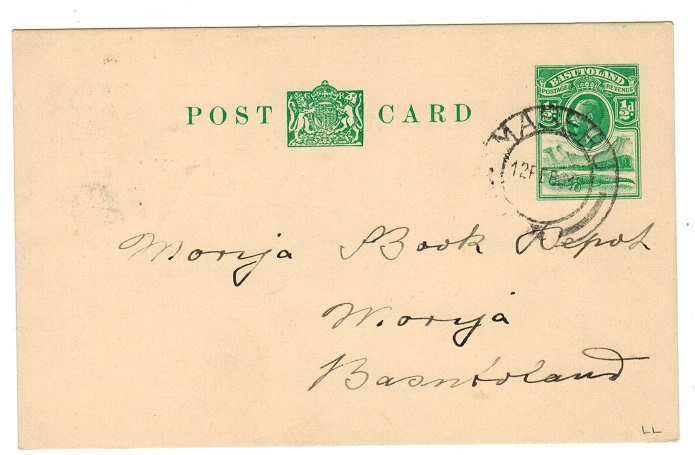 POST CARD
BASUTOLAND
POSTAGE REVENUE
½d
12 FEB
Morija Book Depot
Morija
Basutoland
LL